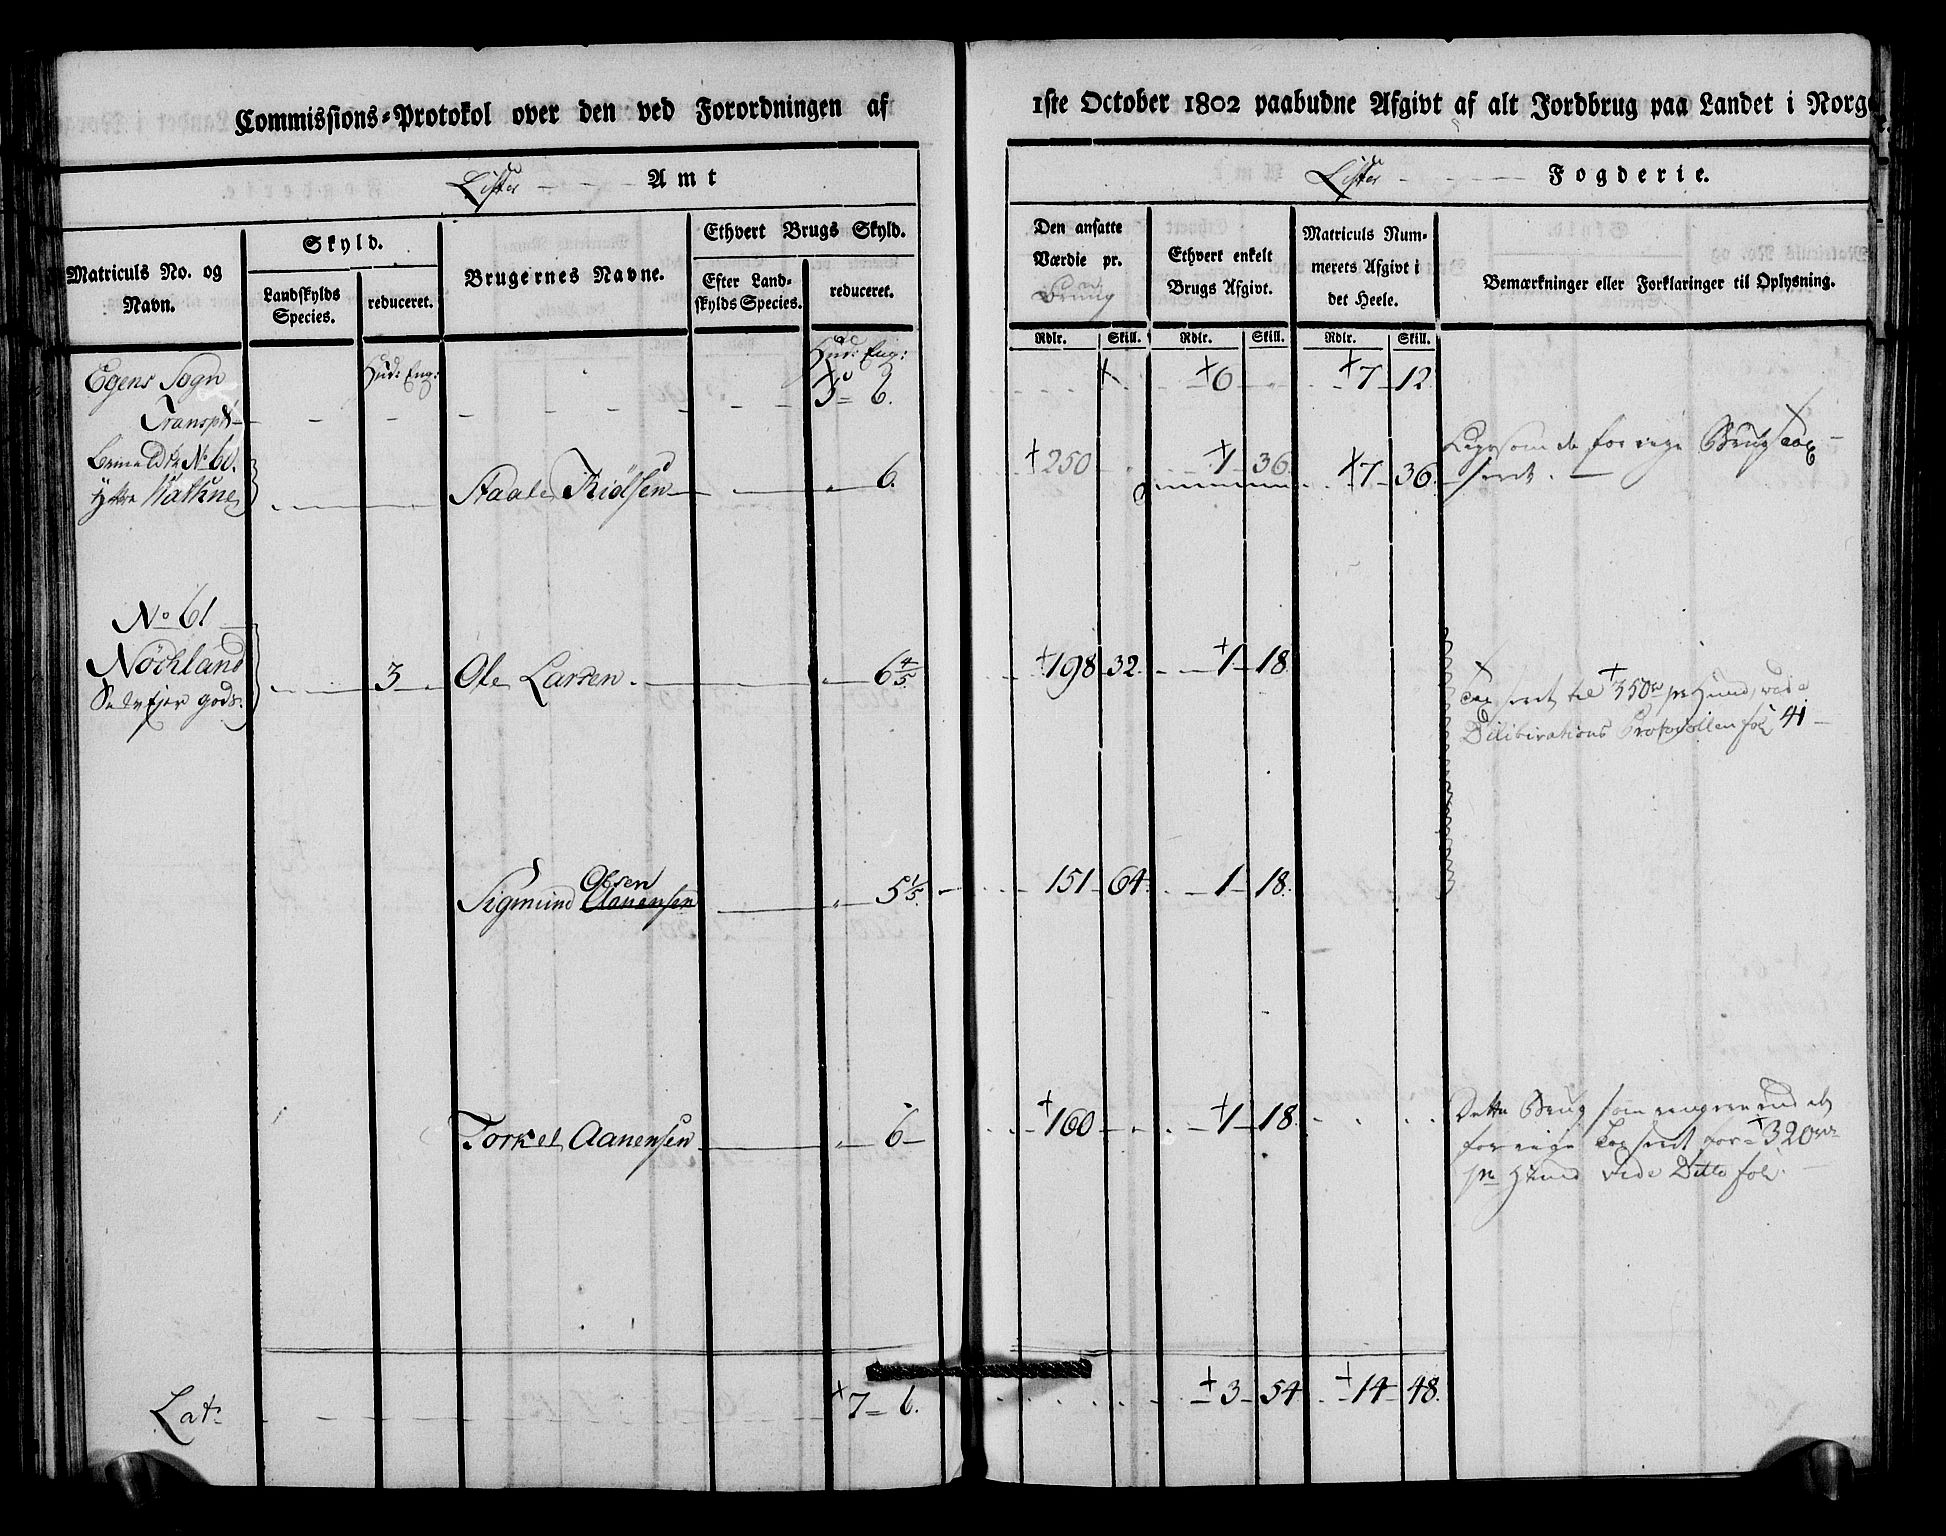 Commissions-Protokol over den ved Forordningen af
1ste October 1802 paabudne Afgivt af alt Jordbrug paa Landet i Norge
Lister Amt
Lister Fogderie.
Matriculs No. og Navn.
Skyld.
Landskylds Species.
reduceret.
Brugernes Navne.
Ethvert Brugs Skyld.
Efter Landskylds Species.
reduceret.
Den ansatte Værdie pr.
Ethvert enkelt Brugs Afgivt.
Matriculs Nummerets Afgivt i det Heele.
Bemærkninger eller Forklaringer til Oplysning.
Rdlr. Skill. Rdlr. Skill. Rdlr. Skill.
Hud: Eng: Hud: Eng:
Egens Sogn
Transpt 5 6. 6 7 12
No 60.
Ytre Nathne Staale 6. 250 1 36. 7 36.
No 61
Nöchland 3 Ole Larsen 6 4/5. 198 32. 1 18
Selvejer gods. taxseret til 350 pr Hund, vide
Deliberations Protocollen fol 41
Olsen
Sigmund Aanensen 5 1/5. 151 64. 1 18.
Torkel Aanensen 6 160 1 18.
Dette Brug som
forrige taxseret for 320
pr Hund vide Ditto fol
Lat: 7 6. 3 54 14 48.